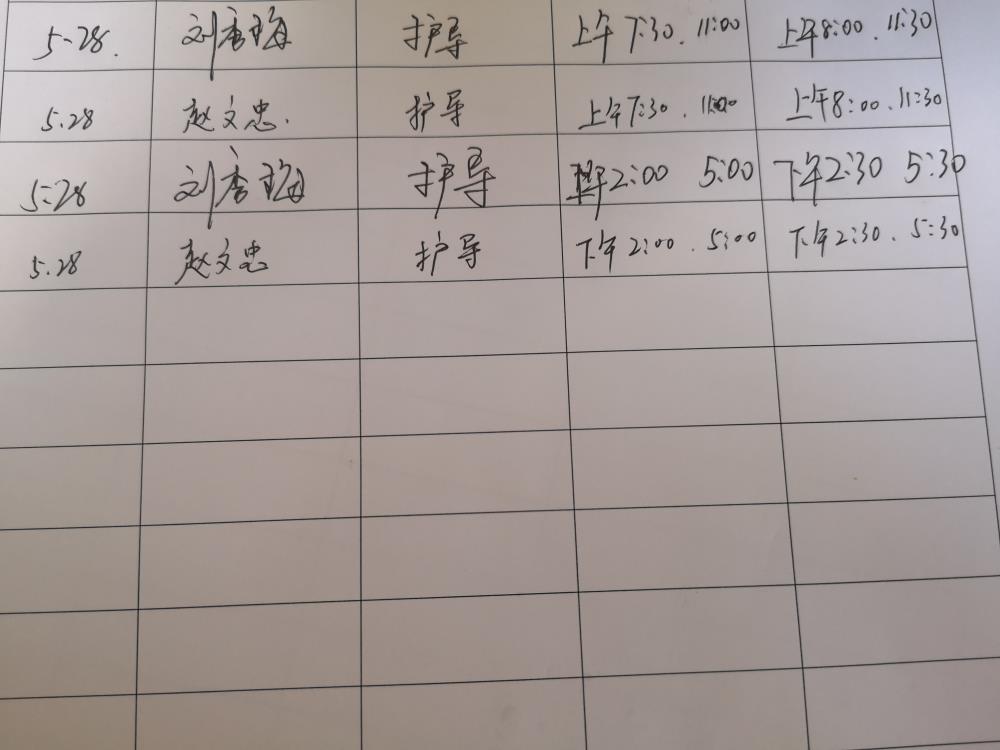 5-28. 刘秀梅 护导 上午 7:30. 11:00 上午8:00. 11:30
5.28 赵文忠. 护导 上午7:30. 11:00 上午8:00. 11:30
5-28 刘秀梅 护导 2:00 5:00 下午2:30 5:30
5.28 赵文忠 护导 下午2:00. 5:00 下午2:30. 5:30